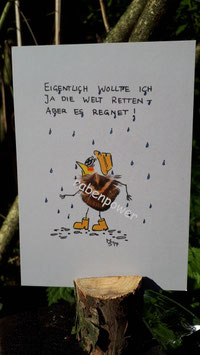 EIGENTLICH WOLLTE ICH
JA DIE WELT RETTEN,
ABER ES REGNET!